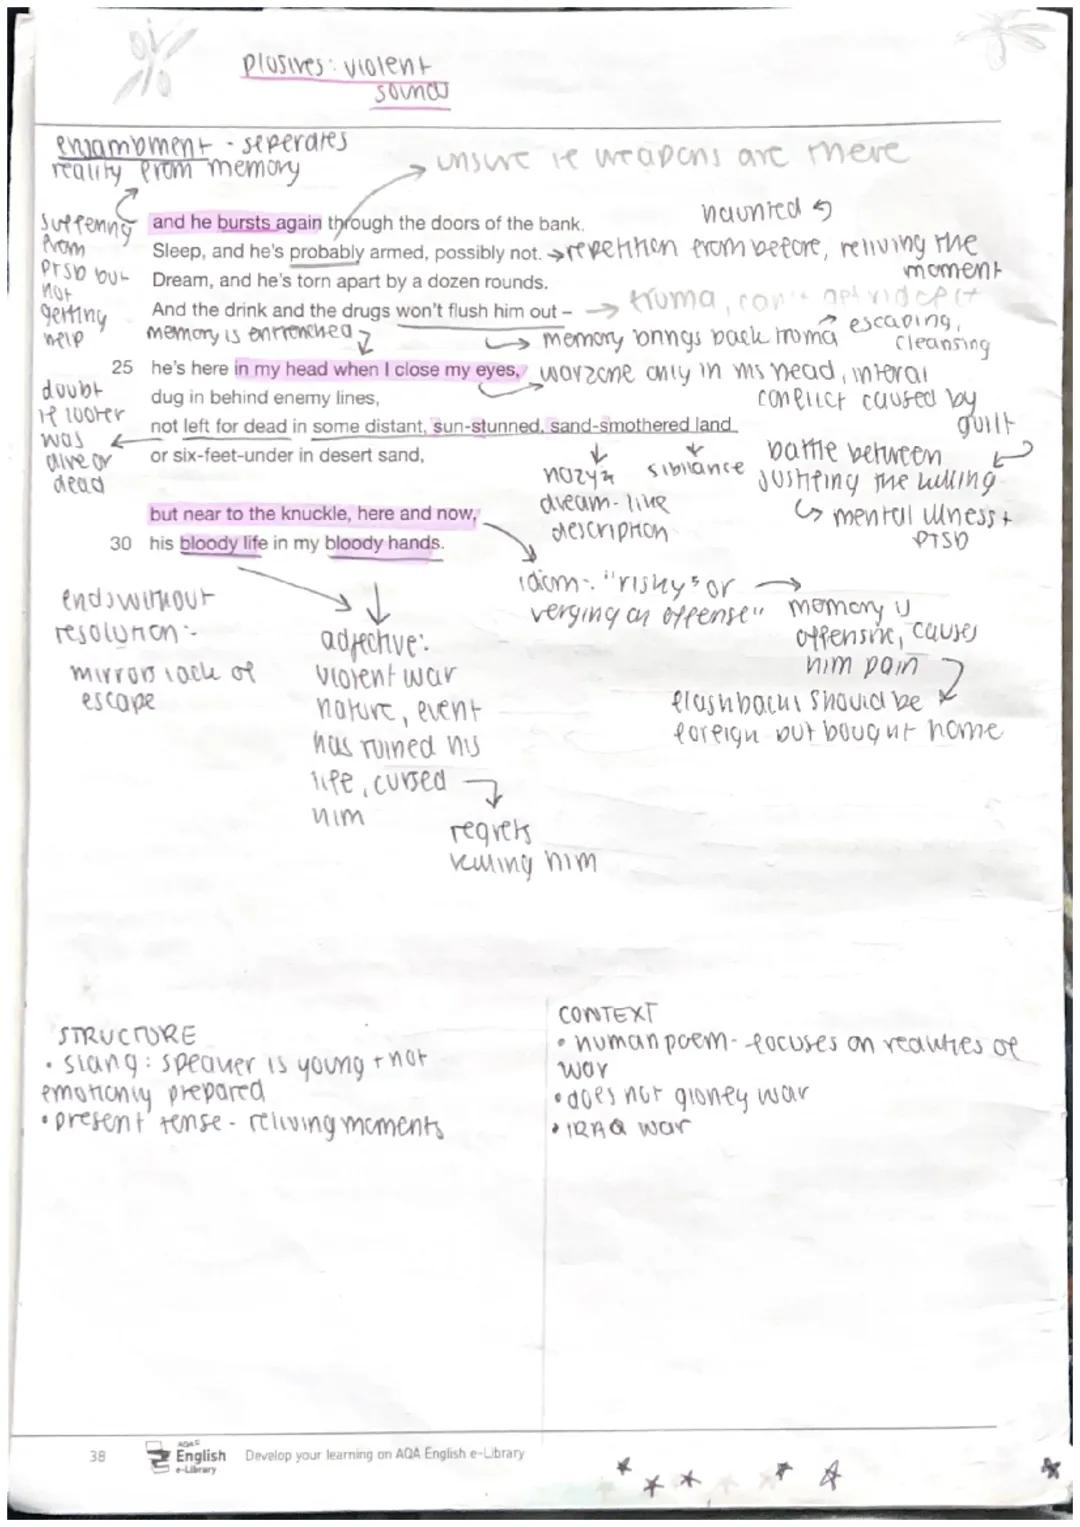 plosives: violent
sounds
enjambment - seperates
reality from memory
unsure if weapons are there
haunted
suffering
from
PTSD but
not
getting
help
and he bursts again through the doors of the bank.
Sleep, and he's probably armed, possibly not. → repetition from before, reliving the
moment
Dream, and he's torn apart by a dozen rounds.
And the drink and the drugs won't flush him out – → truma, can't get rid of it
memory is entrenched
memory brings back truma
escaping,
cleansing
25 he's here in my head when I close my eyes, warzone only in his head, interal
conflict caused by
guilt
dug in behind enemy lines,
doubt
if looter
was
alive or
dead
not left for dead in some distant, sun-stunned, sand-smothered land
or six-feet-under in desert sand,
hazy +
dream-like
description
sibilance
battle between
justifing the killing
↳ mental illness +
PTSD
but near to the knuckle, here and now,
30 his bloody life in my bloody hands.
idiom: "risky" or
verging on offense"
memory is
offensive, causes
him pain
flashbacks should be
foreign but bought home
ends without
resolution:
mirrors lack of
escape
adjective:
violent war
nature, event
has ruined his
life, cursed
him
regrets
killing him
STRUCTURE
• slang: speaker is young + not
emotionly prepared
• present tense - reliving moments
CONTEXT
• human poem - focuses on realities of
war
• does not glorify war
• IRAQ war
38
AQA
English
e-Library
Develop your learning on AQA English e-Library